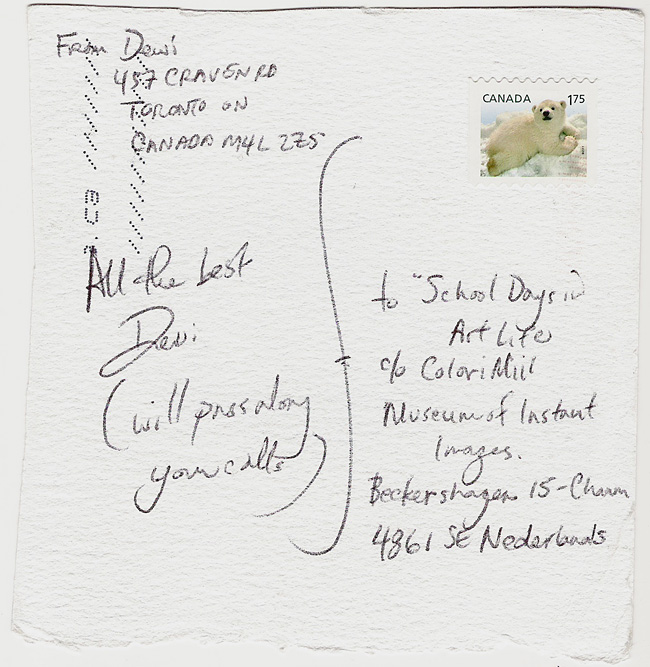 From Dewi
457 CRAVEN RD
TORONTO ON
CANADA M4L 2Z5
CANADA 1.75
All the best
Dewi
(will pass along
your calls)
to "School Days in
Art Life
c/o Colori Miil
Museum of Instant
Images.
Beckershagen 15-Chaam
4861 SE Nederlands